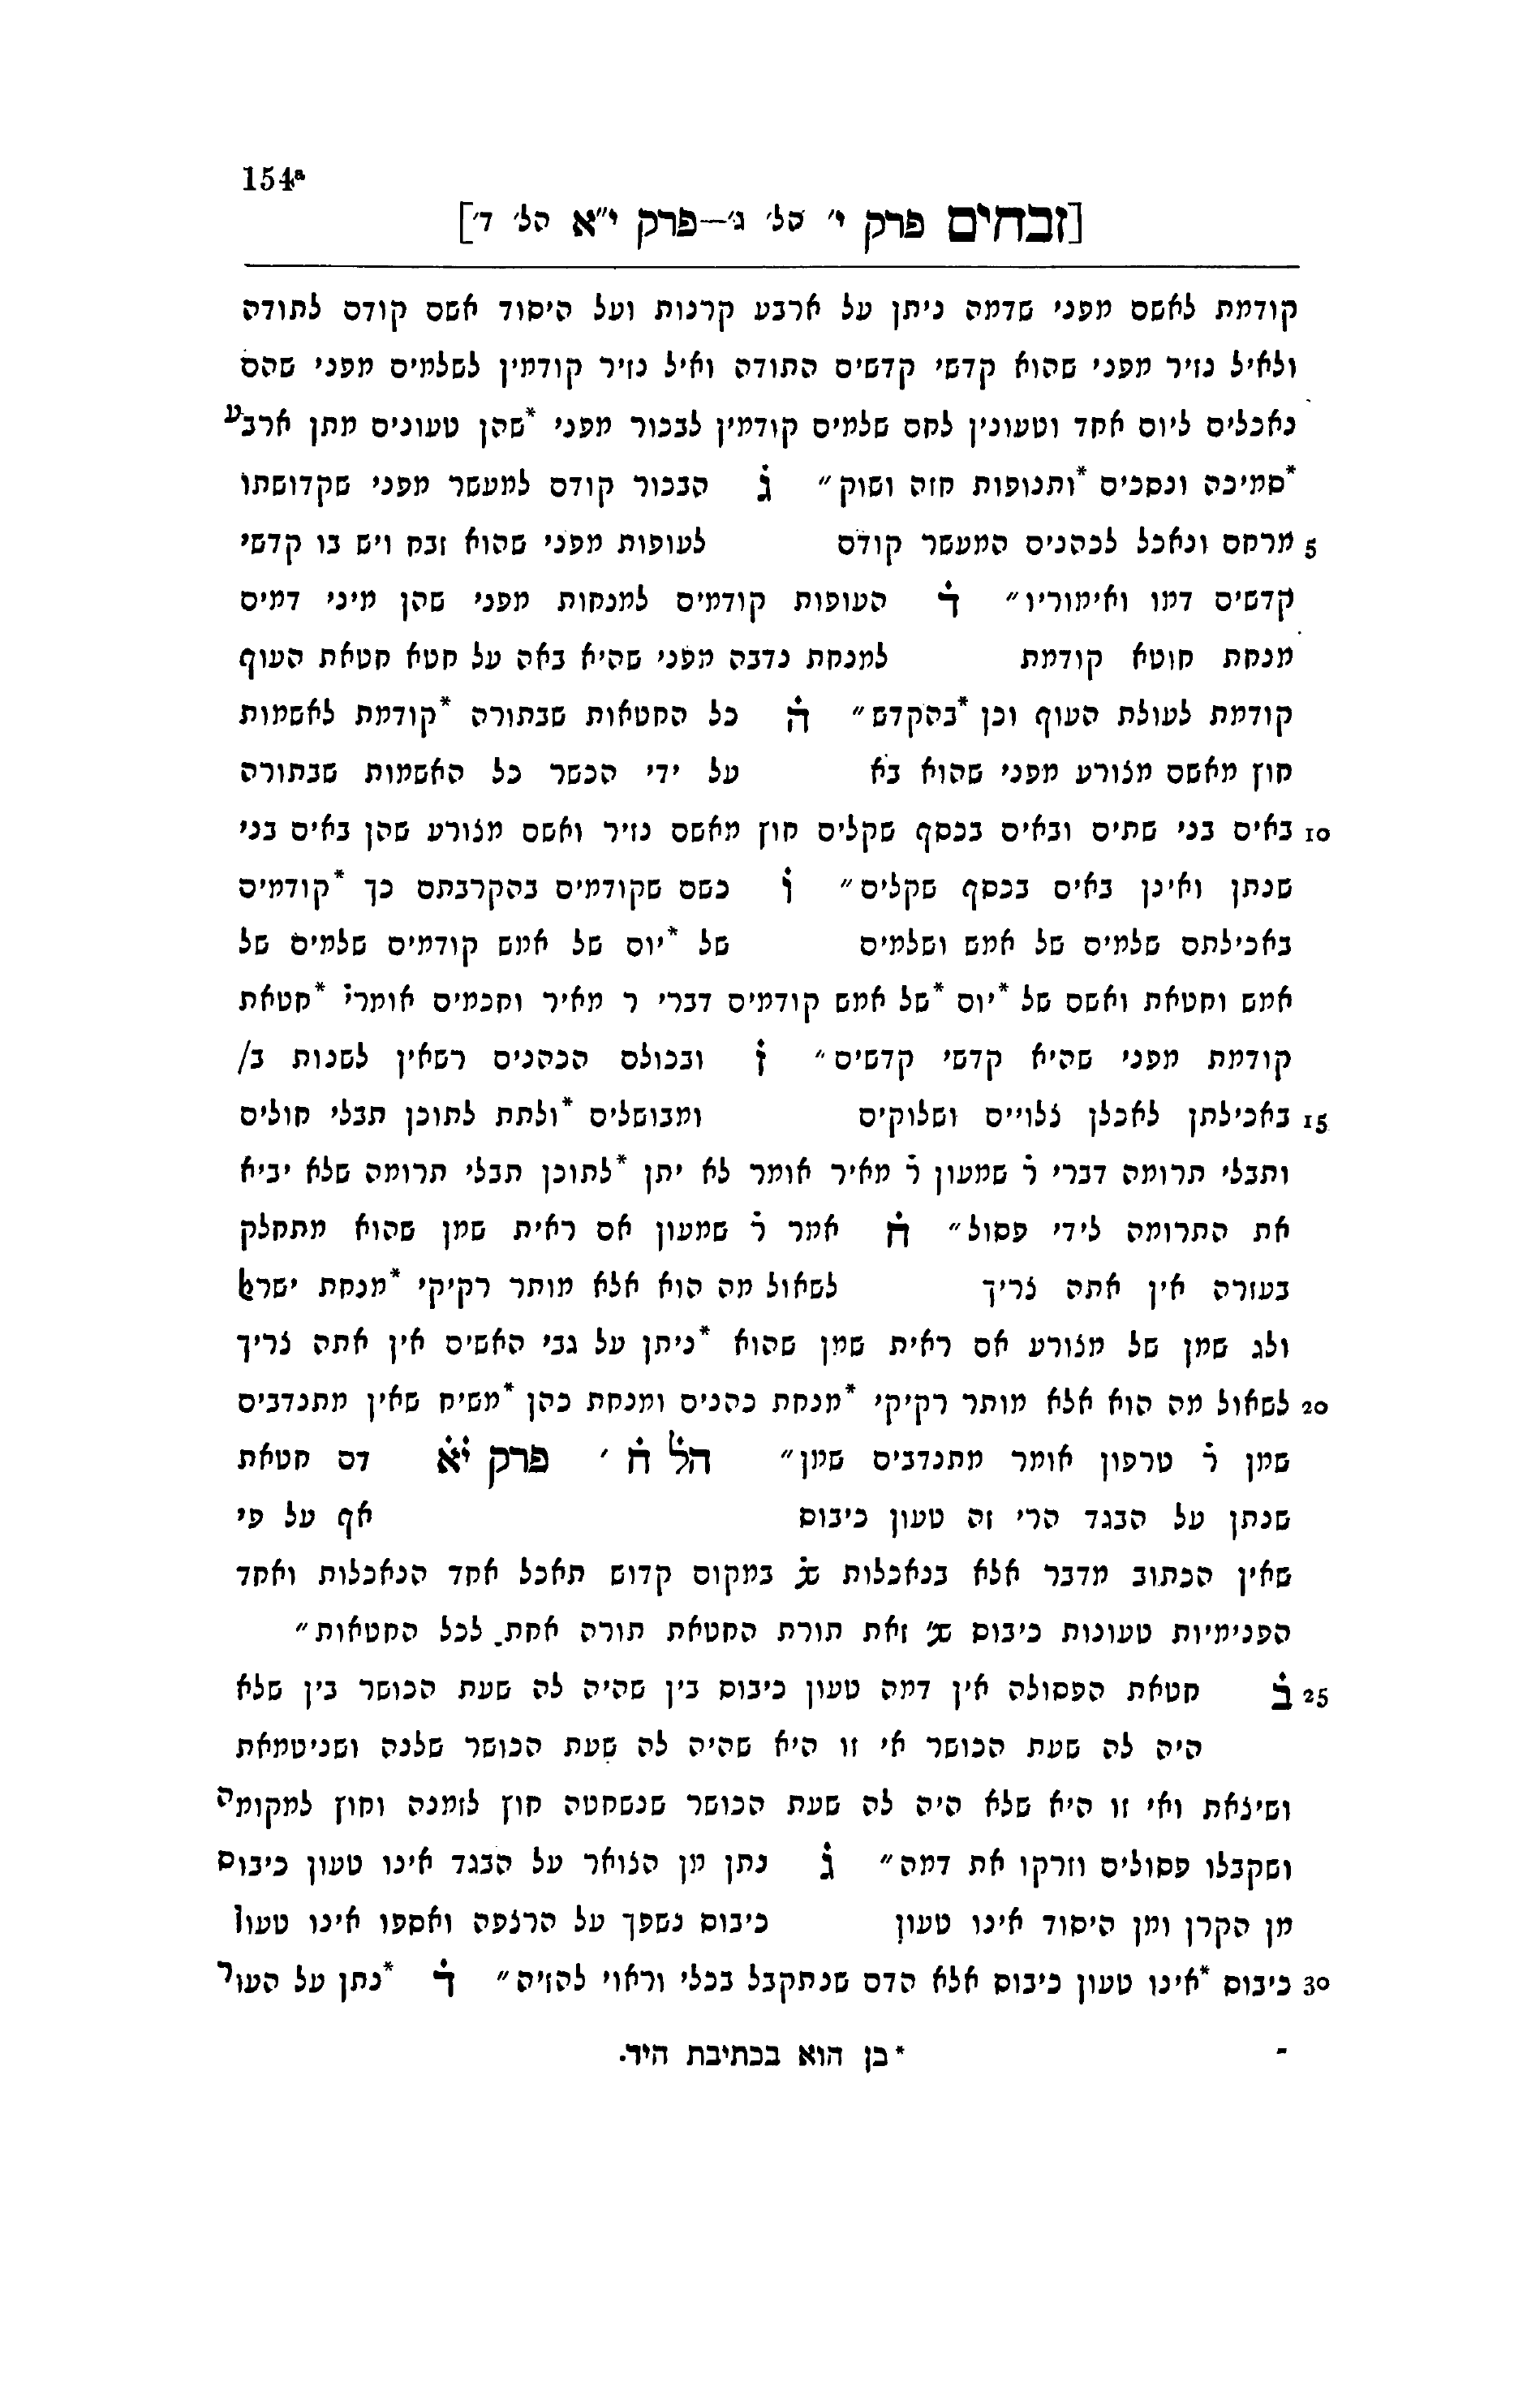 154a
[זבחים פרק י' הל' ג'—פרק י"א הל' ד']
קודמת לאשם מפני שדמה ניתן על ארבע קרנות ועל היסוד אשם קודם לתודה
ולאיל נזיר מפני שהוא קדשי קדשים התודה ואיל נזיר קודמין לשלמים מפני שהם
נאכלים ליום אחד וטעונין לחם שלמים קודמין לבכור מפני *שהן טעונים מתן ארבע
*סמיכה ונסכים *ותנופות חזה ושוק" ג הבכור קודם למעשר מפני שקדושתו
5 מרחם ונאכל לכהנים המעשר קודם לעופות מפני שהוא זבח ויש בו קדשי
קדשים דמו ואימוריו" ד העופות קודמים למנחות מפני שהן מיני דמים
מנחת חוטא קודמת למנחת נדבה מפני שהיא באה על חטא חטאת העוף
קודמת לעולת העוף וכן *בהקדש" ה כל החטאות שבתורה *קודמת לאשמות
חוץ מאשם מצורע מפני שהוא בא על ידי הכשר כל האשמות שבתורה
10 באים בני שתים ובאים בכסף שקלים חוץ מאשם נזיר ואשם מצורע שהן באים בני
שנתן ואינן באים בכסף שקלים" ו כשם שקודמים בהקרבתם כך *קודמים
באכילתם שלמים של אמש ושלמים של *יום של אמש קודמים שלמים של
אמש וחטאת ואשם של *יום *של אמש קודמים דברי ר מאיר וחכמים אומרי *חטאת
קודמת מפני שהיא קדשי קדשים" ז ובכולם הכהנים רשאין לשנות ב/
15 באכילתן לאכלן צלויים ושלוקים ומבושלים *ולתת לתוכן תבלי חולים
ותבלי תרומה דברי ר שמעון ר מאיר אומר לא יתן *לתוכן תבלי תרומה שלא יביא
את התרומה לידי פסול" ח אמר ר שמעון אם ראית שמן שהוא מתחלק
בעזרה אין אתה צריך לשאול מה הוא אלא מותר רקיקי *מנחת ישרﭏ
ולג שמן של מצורע אם ראית שמן שהוא *ניתן על גבי האשים אין אתה צריך
20 לשאול מה הוא אלא מותר רקיקי *מנחת כהנים ומנחת כהן *משיח שאין מתנדבים
שמן ר טרפון אומר מתנדבים שמן" הל ח ' פרק יא דם חטאת
שנתן על הבגד הרי זה טעון כיבוס אף על פי
שאין הכתוב מדבר אלא בנאכלות שנ במקום קדוש תאכל אחד הנאכלות ואחד
הפנימיות טעונות כיבוס שנ' זאת תורת החטאת תורה אחת לכל החטאות"
25 ב חטאת הפסולה אין דמה טעון כיבוס בין שהיה לה שעת הכושר בין שלא
היה לה שעת הכושר אי זו היא שהיה לה שעת הכושר שלנה ושניטמאת
ושיצאת ואי זו היא שלא היה לה שעת הכושר שנשחטה חוץ לזמנה וחוץ למקומה
ושקבלו פסולים וזרקו את דמה" ג נתן מן הצואר על הבגד אינו טעון כיבוס
מן הקרן ומן היסוד אינו טעון כיבוס נשפך על הרצפה ואספו אינו טעון
30 כיבוס *אינו טעון כיבוס אלא הדם שנתקבל בכלי וראוי להזיה" ד *נתן על העור
*כן הוא בכתיבת היד.